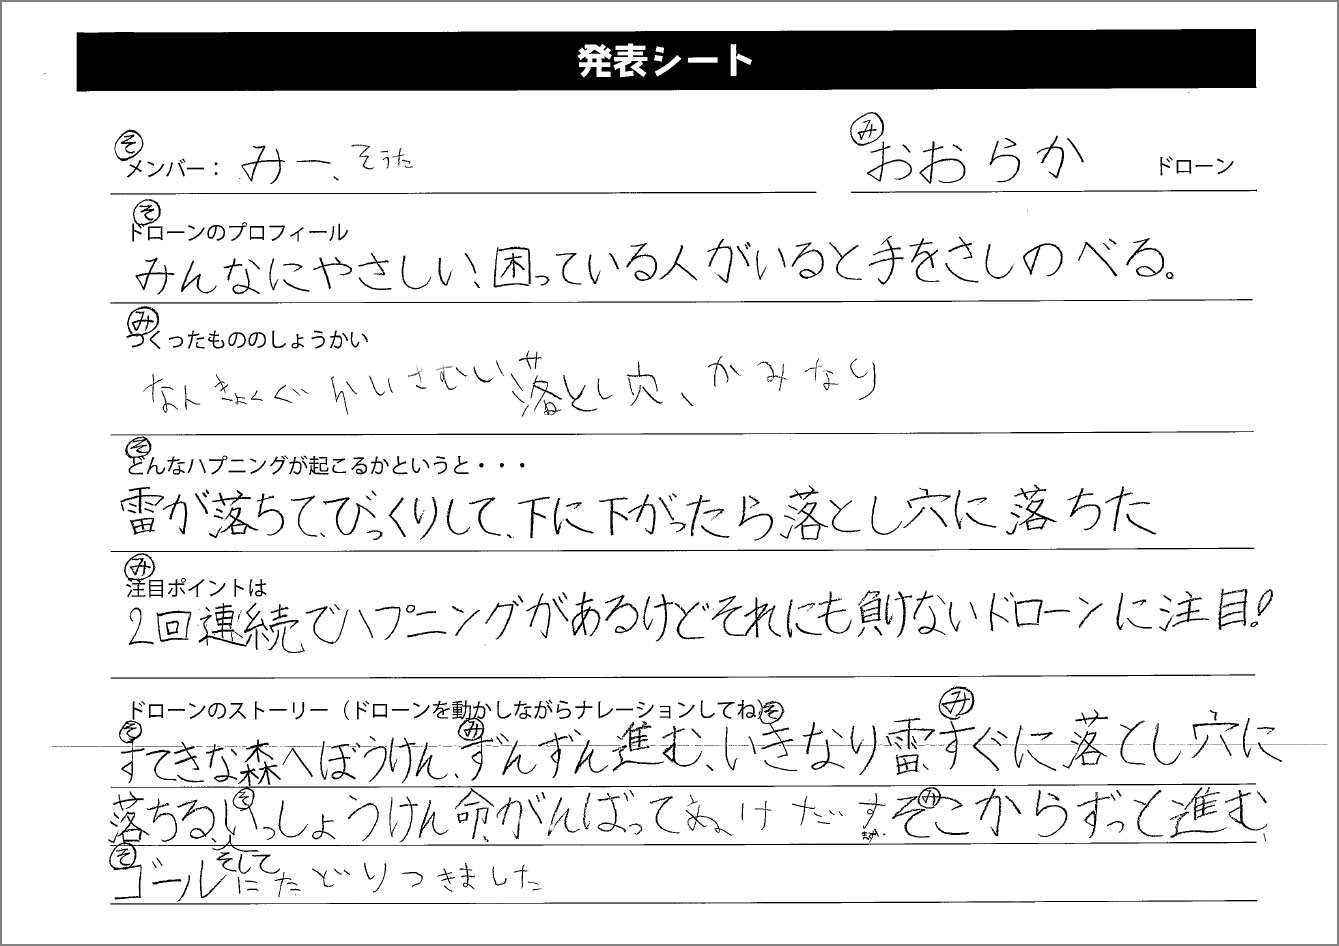 発表シート
そ み
メンバー： みー、そうた おおらか ドローン
そ
ドローンのプロフィール
みんなにやさしい、困っている人がいると手をさしのべる。
み
つくったもののしょうかい
なんきょくぐらいさむい落とし穴、かみなり
そ
どんなハプニングが起こるかというと・・・
雷が落ちて、びっくりして、下に下がったら落とし穴に落ちた
み
注目ポイントは
2回連続でハプニングがあるけどそれにも負けないドローンに注目!
ドローンのストーリー（ドローンを動かしながらナレーションしてね）
そ み そ み
すてきな森へぼうけん、ずんずん進む、いきなり雷、すぐに落とし穴に
そ み
落ちる、いっしょうけん命、がんばってぬけだす そこからずっと進む、
そ そして
ゴールにたどりつきました